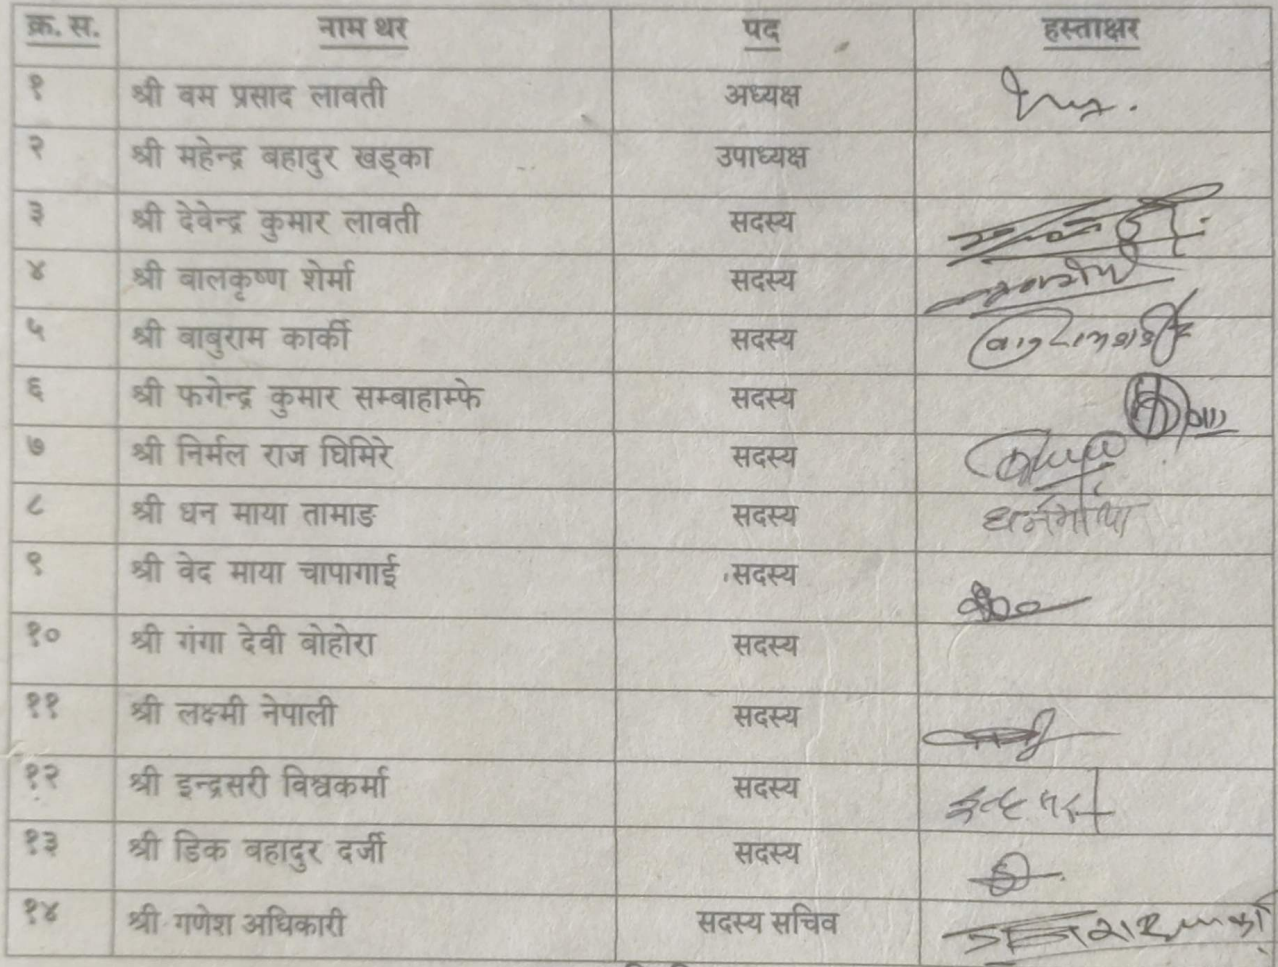 क्र. स. नाम थर पद हस्ताक्षर
१ श्री वम प्रसाद लावती अध्यक्ष
२ श्री महेन्द्र वहादुर खड्का उपाध्यक्ष
३ श्री देवेन्द्र कुमार लावती सदस्य
४ श्री वालकृष्ण शेर्मा सदस्य
५ श्री बाबुराम कार्की सदस्य
६ श्री फगेन्द्र कुमार सम्बाहाम्फे सदस्य
७ श्री निर्मल राज घिमिरे सदस्य
८ श्री धन माया तामाङ सदस्य धनमाया
९ श्री वेद माया चापागाई सदस्य
१० श्री गंगा देवी बोहोरा सदस्य
११ श्री लक्ष्मी नेपाली सदस्य
१२ श्री इन्द्रसरी विश्वकर्मा सदस्य
१३ श्री डिक वहादुर दर्जी सदस्य
१४ श्री गणेश अधिकारी सदस्य सचिव